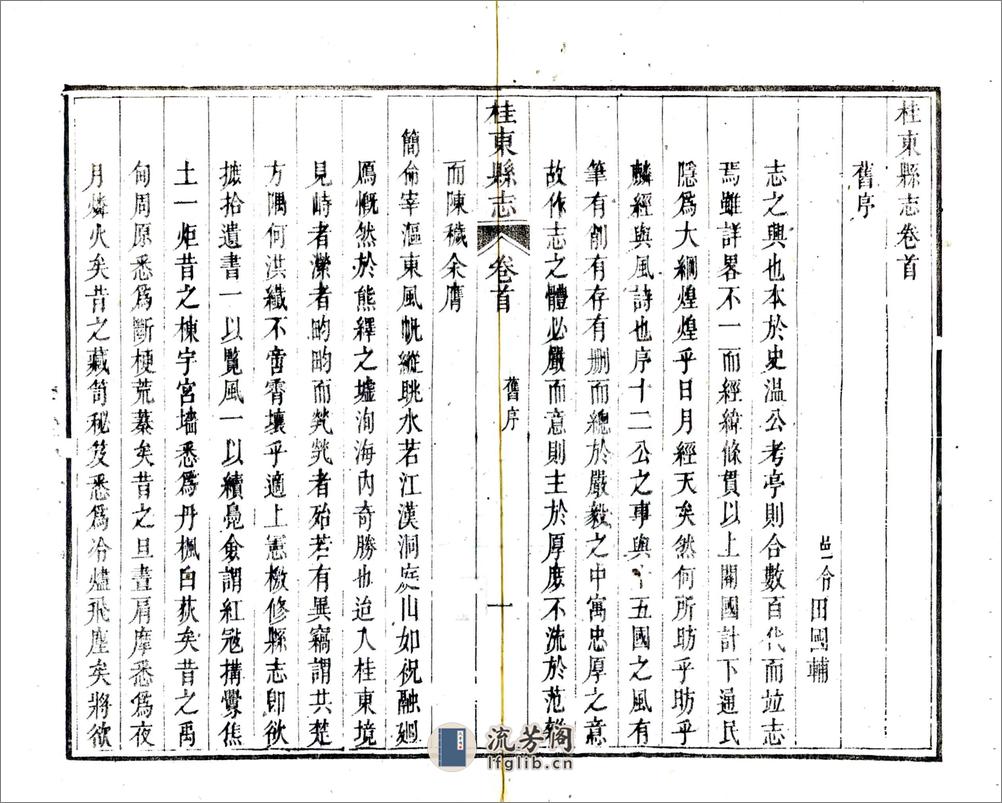 桂東縣志卷首
舊序
邑令田國輔
志之興也本於史温公考亭則合數百代而並志
焉雖詳畧不一而經緯條貫以上關國計下通民
隱爲大綱煌煌乎日月經天矣然何所昉乎昉乎
麟經與風詩也序十二公之事與十五國之風有
筆有削有存有删而總於嚴毅之中寓忠厚之意
故作志之體必嚴而意則主於厚庶不流於范
而陳穢余膺
桂東縣志
卷首
舊序
一
簡命宰漚東風帆縱眺水若江漢洞庭山如祝融廻
鴈慨然於熊繹之墟洵海内奇勝也迨入桂東境
見峙者瀠者畇畇而煢煢者殆若有異竊謂共楚
方隅何洪纖不啻霄壤乎適上憲檄修縣志卽欲
摭拾遺書一以覽風一以續鳧僉謂紅冦搆釁焦
土一炬昔之棟宇宮墻悉爲丹楓白荻矣昔之禹
甸周原悉爲斷梗荒蓁矣昔之旦晝肩摩悉爲夜
月燐火矣昔之藏笥秘笈悉爲冷燼飛塵矣將欲
流芳阁
lfglib.cn